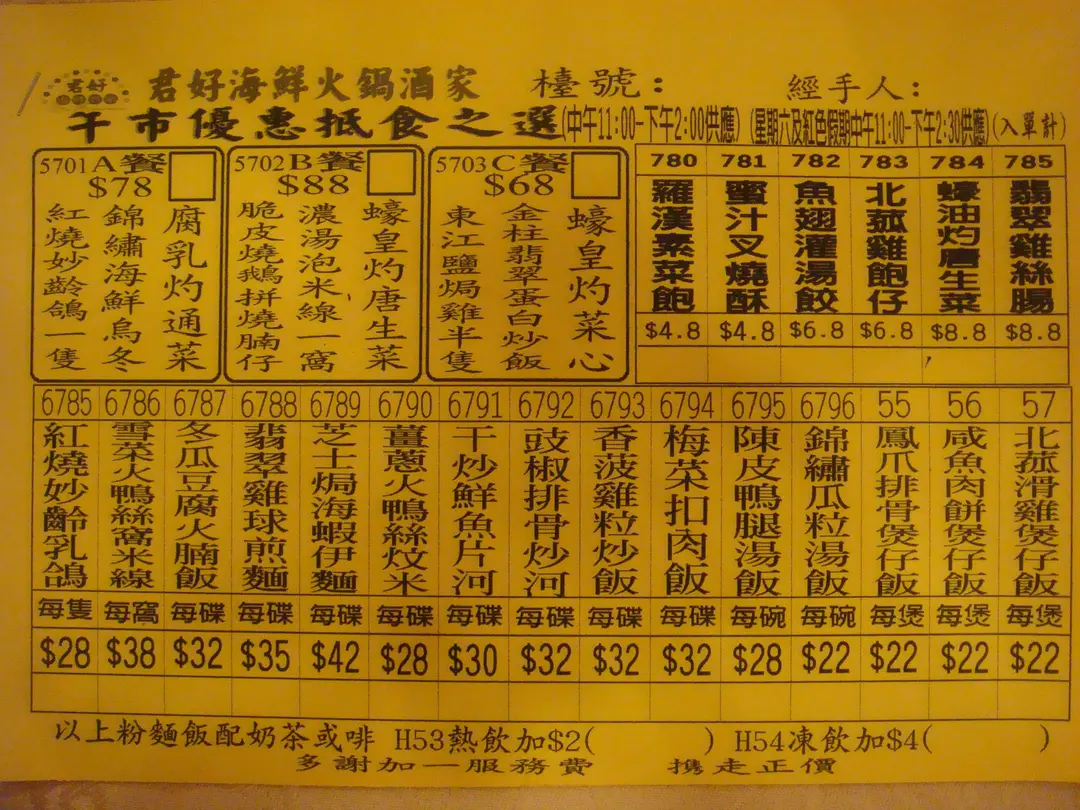 君好 君好海鮮火鍋酒家 檯號: 經手人:
午市優惠抵食之選(中午11:00-下午2:00供應)(星期六及紅色假期中午11:00-下午2:30供應)(入單計)
5701 A餐
$78
腐乳灼通菜
錦繡海鮮烏冬
紅燒妙齡鴿一隻
5702 B餐
$88
蠔皇灼唐生菜
濃湯泡米線一窩
脆皮燒鵝拼燒腩仔
5703 C餐
$68
蠔皇灼菜心
金柱翡翠蛋白炒飯
東江鹽焗雞半隻
780 781 782 783 784 785
羅漢素菜飽
蜜汁叉燒酥
魚翅灌湯餃
北菰雞飽仔
蠔油灼唐生菜
翡翠雞絲腸
$4.8 $4.8 $6.8 $6.8 $8.8 $8.8
6785 6786 6787 6788 6789 6790 6791 6792 6793 6794 6795 6796 55 56 57
紅燒妙齡乳鴿
雪菜火鴨絲窩米線
冬瓜豆腐火腩飯
翡翠雞球煎麵
芝士焗海蝦伊麵
薑蔥火鴨絲炆米
干炒鮮魚片河
豉椒排骨炒河
香菠雞粒炒飯
梅菜扣肉飯
陳皮鴨腿湯飯
錦繡瓜粒湯飯
鳳爪排骨煲仔飯
咸魚肉餅煲仔飯
北菰滑雞煲仔飯
每隻 每窩 每碟 每碟 每碟 每碟 每碟 每碟 每碟 每碟 每碗 每碗 每煲 每煲 每煲
$28 $38 $32 $35 $42 $28 $30 $32 $32 $32 $28 $22 $22 $22 $22
以上粉麵飯配奶茶或啡 H53熱飲加$2( ) H54凍飲加$4( )
多謝加一服務費 携走正價